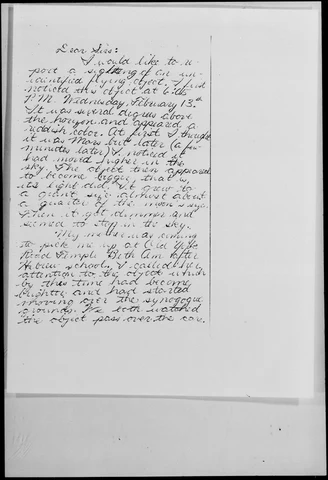 Dear Sirs:
I would like to re-
port a sighting of an un-
identified flying object. I first
noticed this object at 6:
P.M. Wednesday, February 13th.
It was several degrees above
the horizon and appeared a
reddish color. At first I thought
it was Mars but later (a few
minutes later) I noticed it
had moved higher in the
sky. The object then appeared
to become bigger, that is,
its light did. It grew to
a giant size almost about
a quarter of the moon's size.
Then it got dimmer and
seemed to stop in the sky.
My mother was coming
to pick me up at Old York
Road Temple Beth Am after
Hebrew school. I called her
attention to the object which
by this time had become
brighter and had started
moving over the synagogue
grounds. We both watched
the object pass over the car.